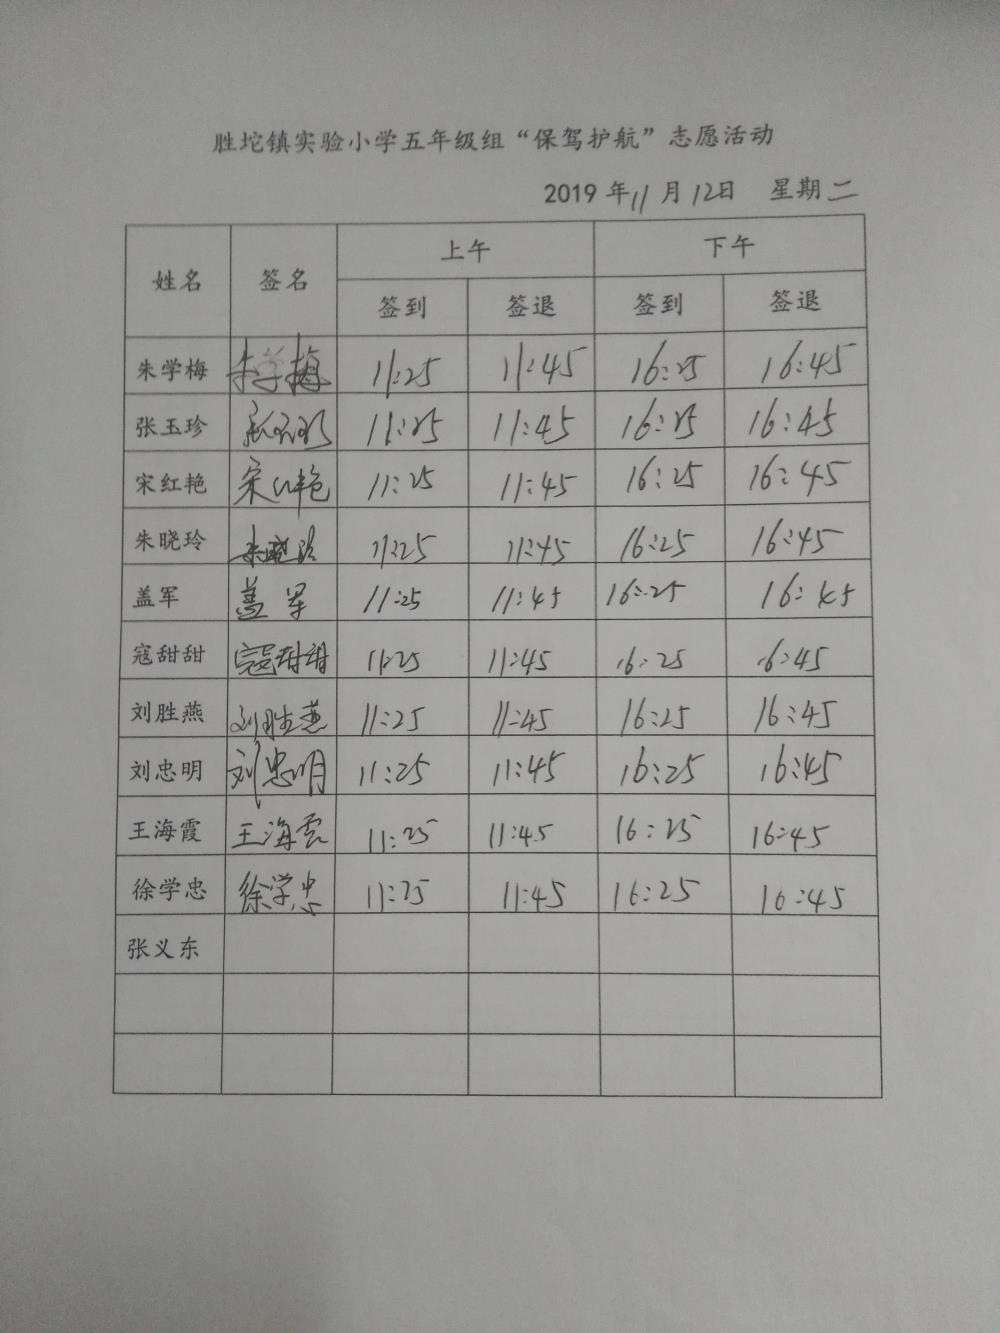 胜坨镇实验小学五年级组“保驾护航”志愿活动
2019 年 11 月 12日 星期二
姓名 签名 上午 下午
签到 签退 签到 签退
朱学梅 朱学梅 11:25 11:45 16:25 16:45
张玉珍 张玉珍 11:25 11:45 16:25 16:45
宋红艳 宋红艳 11:25 11:45 16:25 16:45
朱晓玲 朱晓玲 11:25 11:45 16:25 16:45
盖军 盖军 11:25 11:45 16:25 16:45
寇甜甜 寇甜甜 11:25 11:45 16:25 16:45
刘胜燕 刘胜燕 11:25 11:45 16:25 16:45
刘忠明 刘忠明 11:25 11:45 16:25 16:45
王海霞 王海霞 11:25 11:45 16:25 16:45
徐学忠 徐学忠 11:25 11:45 16:25 16:45
张义东